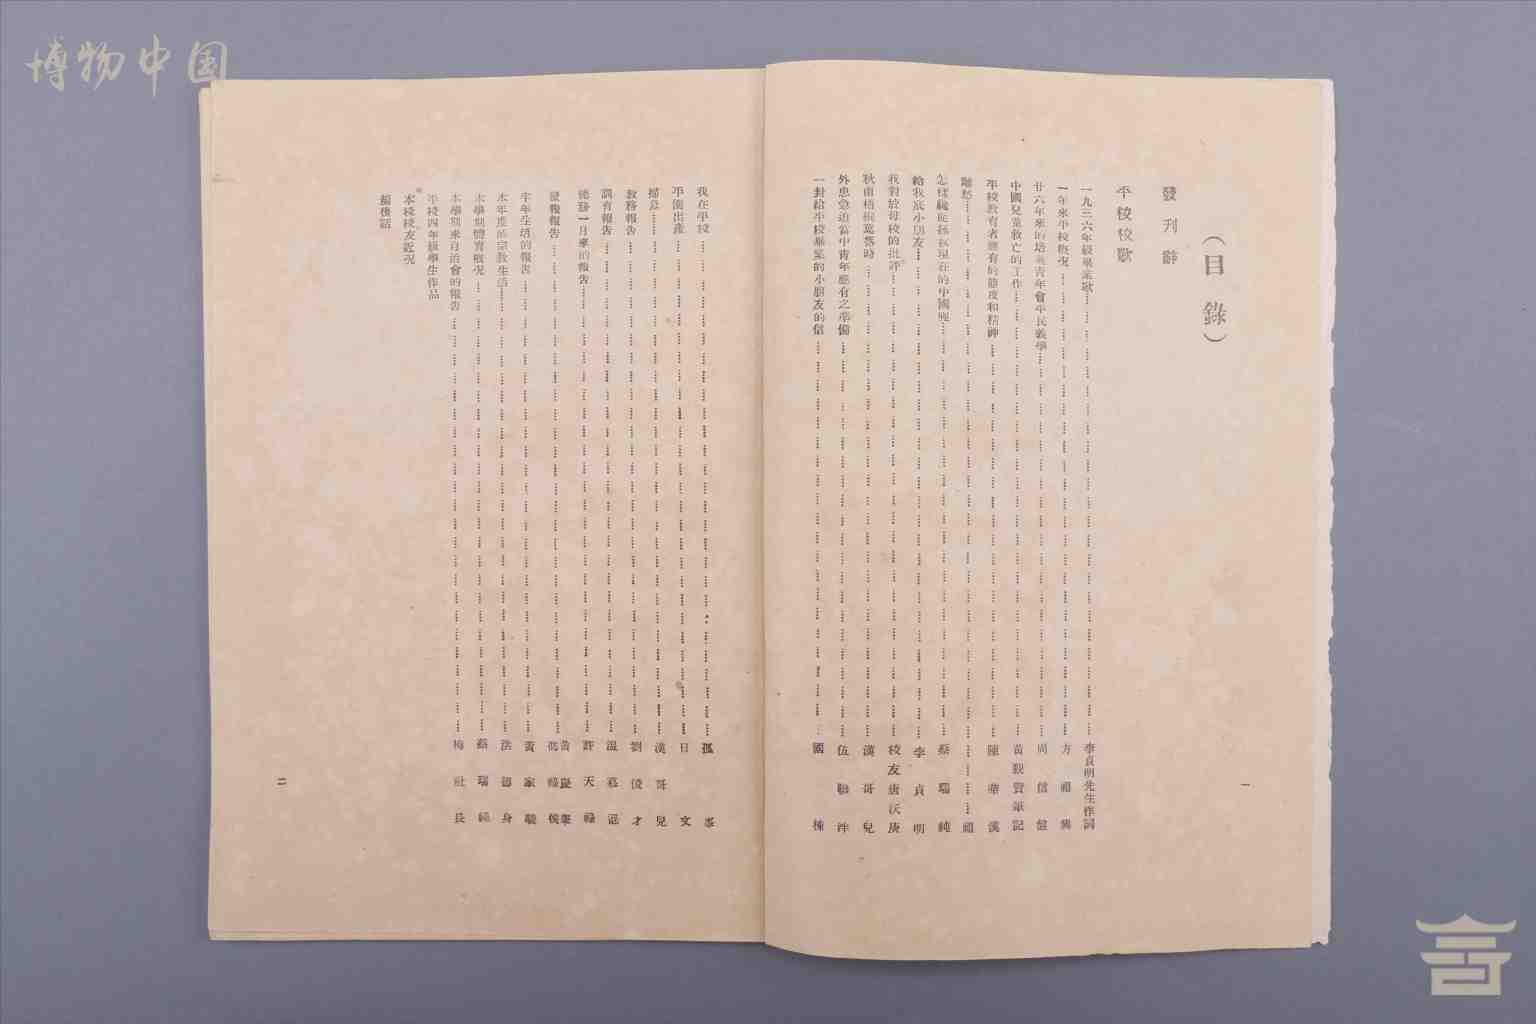 博物中国
（目錄）
發刊辭
平校校歌
一九三六年級畢業歌……李貞明先生作詞
一年來平校概況……方祖興
廿六年來的培英青年會平民義學……周信盤
中國兒童救亡的工作……黃覲賢筆記
平校教育者應有的態度和精神……陳華漢
離愁……
怎樣纔能拯救現在的中國呢……蔡瑞純
給我底小朋友……李貞明
我對於母校的批評……校友唐沃庚
秋雨梧桐葉落時……漢哥兒
外患急迫當中青年應有之準備……伍聯沣
一封給平校畢業的小朋友的信……國棟
一
我在平校……孤峯
平園出產……日文
掃盲……漢哥兒
教務報告……劉俊才
訓育報告……溫慕
總務一月來的報告……許天祿
童報報告……
半年生活的報告……黃家駿
本年度的宗教生活……洪德身
本學期體育概況……蔡瑞純
本學期來自治會的報告……梅社長
平校四年級學生作品
本校校友近況
編後話
二